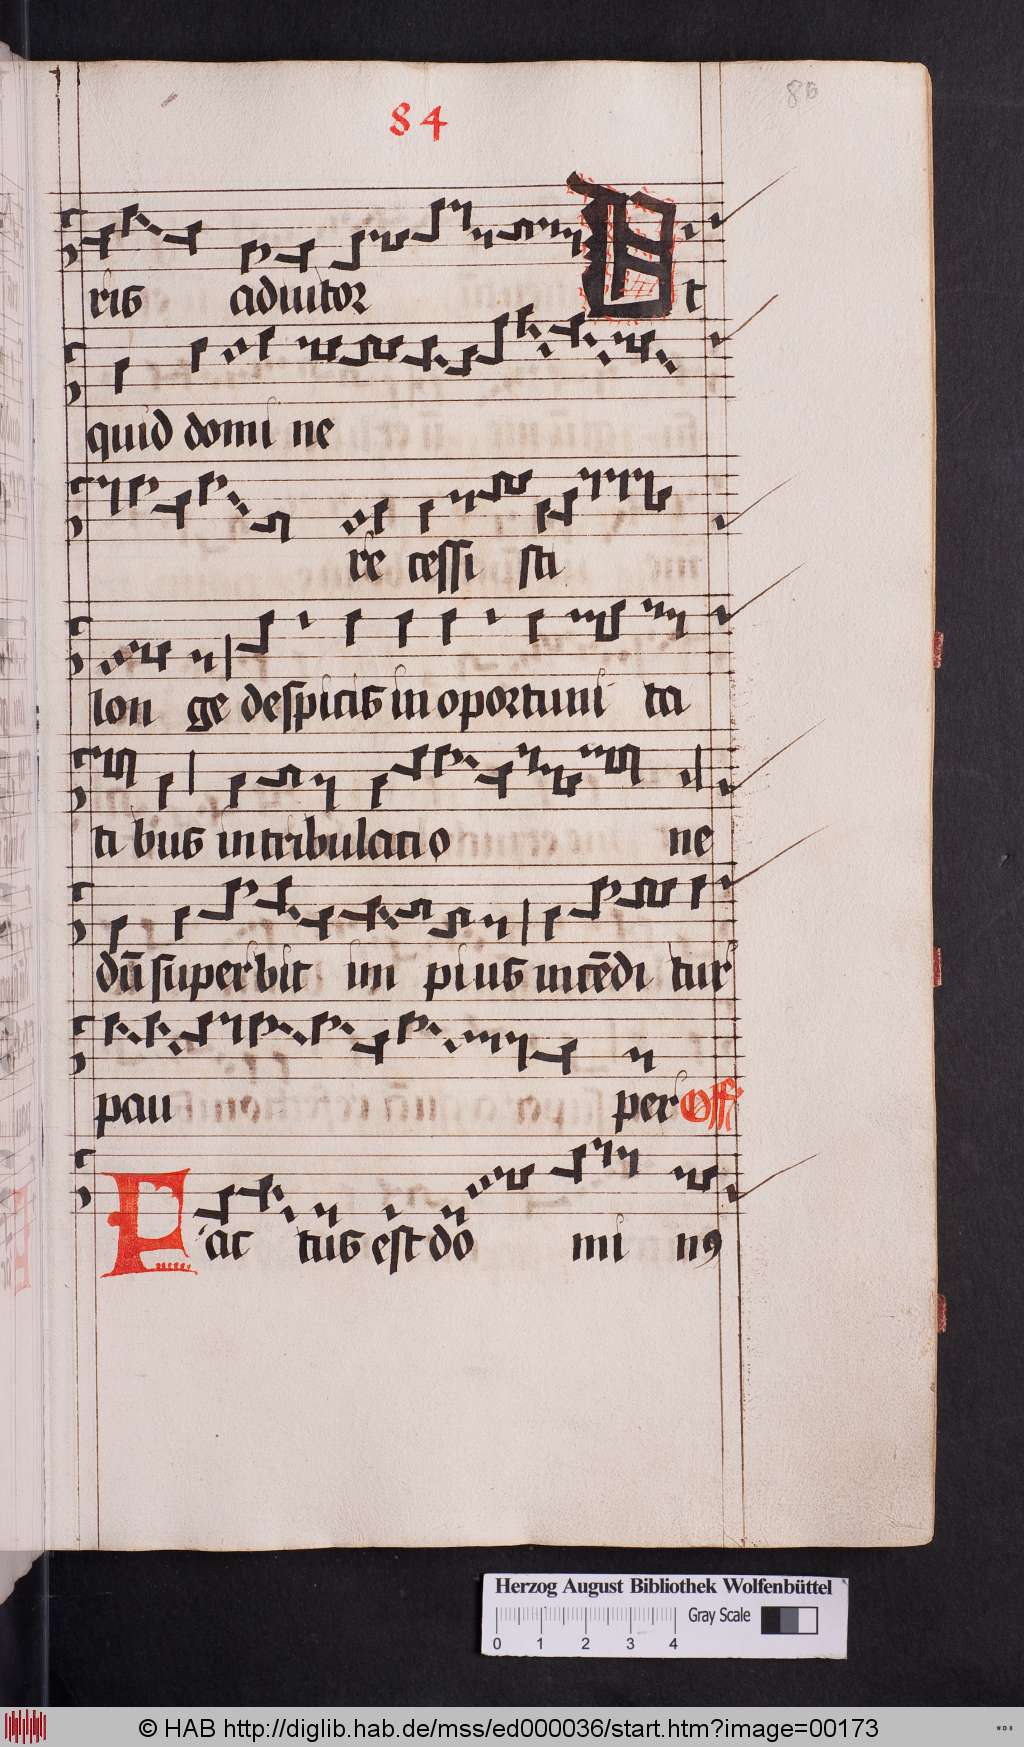 84
86
ris adiutor Ut
quid domi ne
re cessi sti
lon ge despicis in oportuni ta
ti bus in tribulatio ne
dū superbit im pius incēdi tur
pau per Off
Fac tus est do mi nꝰ
Herzog August Bibliothek Wolfenbüttel
Gray Scale
0 1 2 3 4
© HAB http://diglib.hab.de/mss/ed000036/start.htm?image=00173